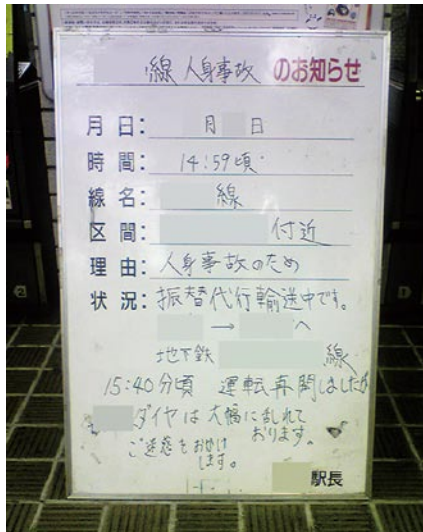 線 人身事故 のお知らせ
月 日： 月 日
時 間： 14:59頃
線 名： 線
区 間： 付近
理 由： 人身事故のため
状 況： 振替代行輸送中です。
→ へ
地下鉄 線
15:40分頃 運転再開しましたが
ダイヤは大幅に乱れて
おります。
ご迷惑をおかけ
します。
駅長